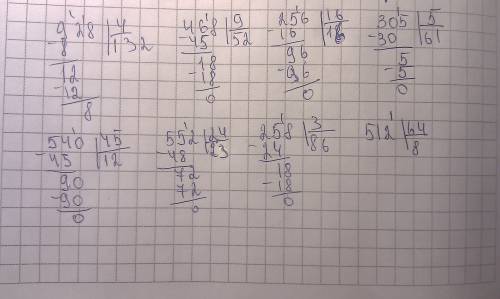 928 | 4
-8 | 132
12
-12
8
468 | 9
-45 | 52
18
-18
0
256 | 16
-16 | 16
96
-96
0
305 | 5
-30 | 61
5
-5
0
540 | 45
-45 | 12
90
-90
0
552 | 24
-48 | 23
72
72
0
258 | 3
-24 | 86
18
-18
0
512 | 64
8